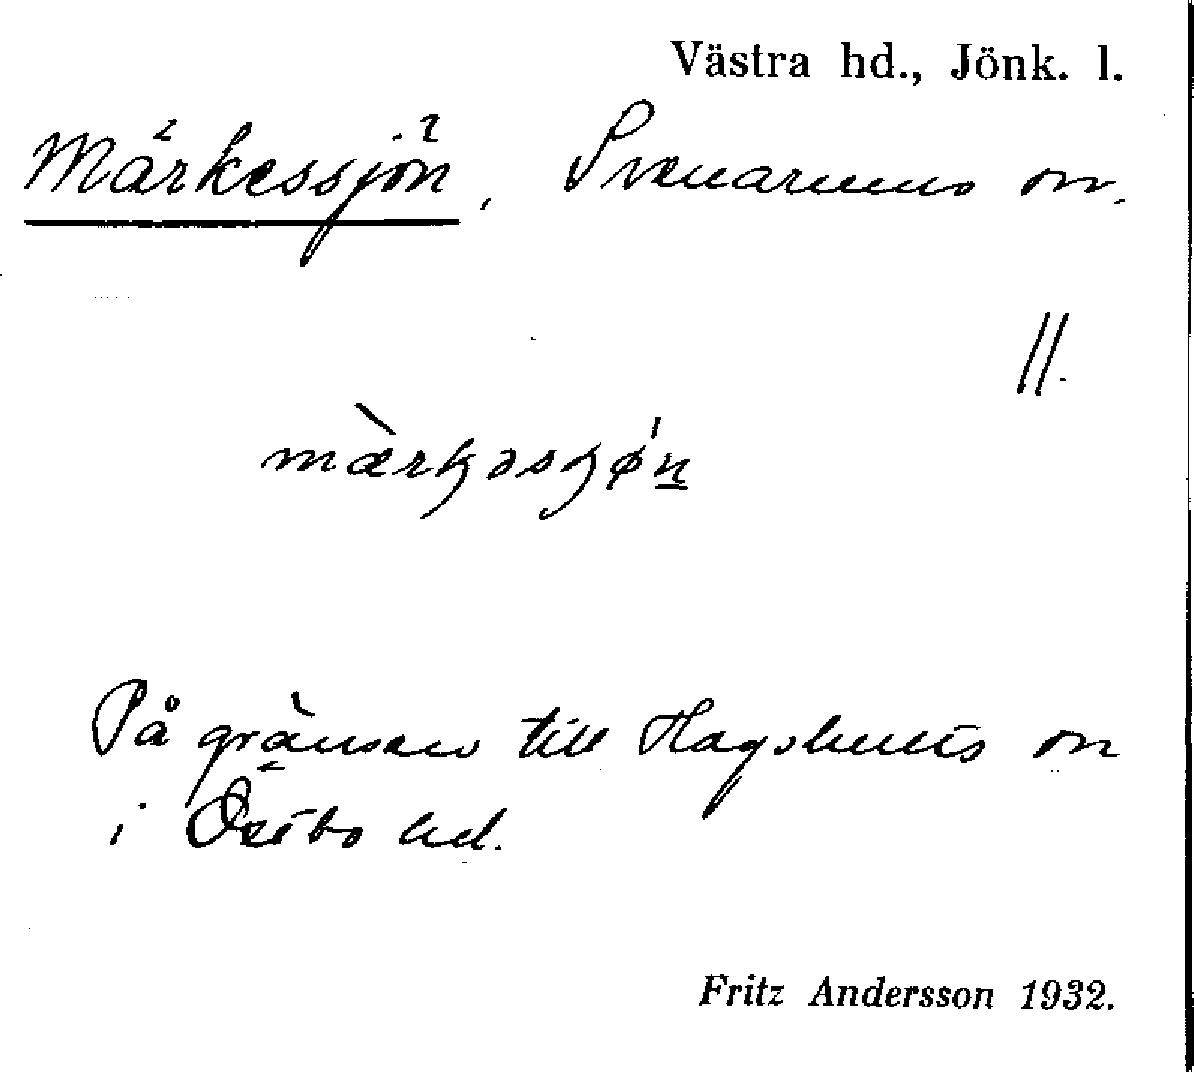 Västra hd., Jönk. l.
Märkessjön, Svenarums sn.
//.
På gränsen till Hagshults sn
i Östbo hd.
Fritz Andersson 1932.